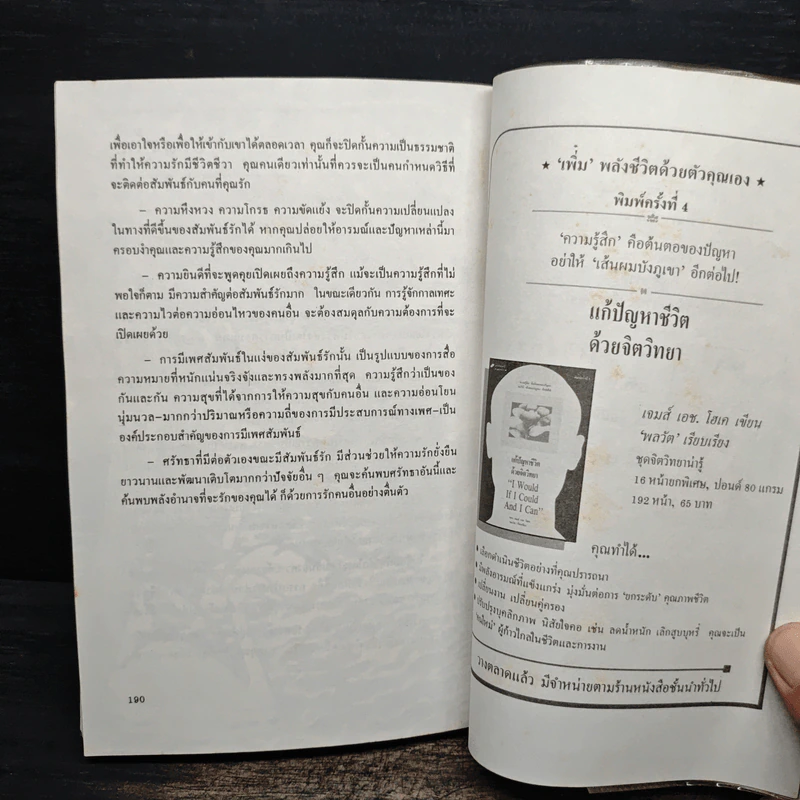 เพื่อเอาใจหรือเพื่อให้เข้ากับเขาได้ตลอดเวลา คุณก็จะปิดกั้นความเป็นธรรมชาติ
ที่ทำให้ความรักมีชีวิตชีวา คุณคนเดียวเท่านั้นที่ควรจะเป็นคนกำหนดวิธีที่
จะติดต่อสัมพันธ์กับคนที่คุณรัก
– ความหึงหวง ความโกรธ ความขัดแย้ง จะปิดกั้นความเปลี่ยนแปลง
ในทางที่ดีขึ้นของสัมพันธ์รักได้ หากคุณปล่อยให้อารมณ์และปัญหาเหล่านี้มา
ครอบงำคุณและความรู้สึกของคุณมากเกินไป
– ความยินดีที่จะพูดคุยเปิดเผยถึงความรู้สึก แม้จะเป็นความรู้สึกที่ไม่
พอใจก็ตาม มีความสำคัญต่อสัมพันธ์รักมาก ในขณะเดียวกัน การรู้จักกาลเทศะ
และความไวต่อความอ่อนไหวของคนอื่น จะต้องสมดุลกับความต้องการที่จะ
เปิดเผยด้วย
– การมีเพศสัมพันธ์ในแง่ของสัมพันธ์รักนั้น เป็นรูปแบบของการสื่อ
ความหมายที่หนักแน่นจริงจังและทรงพลังมากที่สุด ความรู้สึกว่าเป็นของ
กันและกัน ความสุขที่ได้จากการให้ความสุขกับคนอื่น และความอ่อนโยน
นุ่มนวล–มากกว่าปริมาณหรือความถี่ของการมีประสบการณ์ทางเพศ–เป็น
องค์ประกอบสำคัญของการมีเพศสัมพันธ์
– ศรัทธาที่มีต่อตัวเองขณะมีสัมพันธ์รัก มีส่วนช่วยให้ความรักยั่งยืน
ยาวนานและพัฒนาเติบโตมากกว่าปัจจัยอื่น ๆ คุณจะค้นพบศรัทธาอันนี้และ
ค้นพบพลังอำนาจที่จะรักของคุณได้ ก็ด้วยการรักคนอื่นอย่างตื่นตัว
190
★ ‘เพิ่ม’ พลังชีวิตด้วยตัวคุณเอง ★
พิมพ์ครั้งที่ 4
‘ความรู้สึก’ คือต้นตอของปัญหา
อย่าให้ ‘เส้นผมบังภูเขา’ อีกต่อไป!
แก้ปัญหาชีวิต
ด้วยจิตวิทยา
แก้ปัญหาชีวิต
ด้วยจิตวิทยา
“I Would
If I Could
And I Can”
เจมส์ เอช. โฮเค เขียน
‘พลวัต’ เรียบเรียง
ชุดจิตวิทยาน่ารู้
16 หน้ายกพิเศษ, ปอนด์ 80 แกรม
192 หน้า, 65 บาท
คุณทำได้...
• เลือกดำเนินชีวิตอย่างที่คุณปรารถนา
• มีพลังอารมณ์ที่แข็งแกร่ง มุ่งมั่นต่อการ ‘ยกระดับ’ คุณภาพชีวิต
• เปลี่ยนงาน เปลี่ยนคู่ครอง
• ปรับปรุงบุคลิกภาพ นิสัยใจคอ เช่น ลดน้ำหนัก เลิกสูบบุหรี่ คุณจะเป็น
‘คนใหม่’ ผู้ก้าวไกลในชีวิตและการงาน
วางตลาดแล้ว มีจำหน่ายตามร้านหนังสือชั้นนำทั่วไป